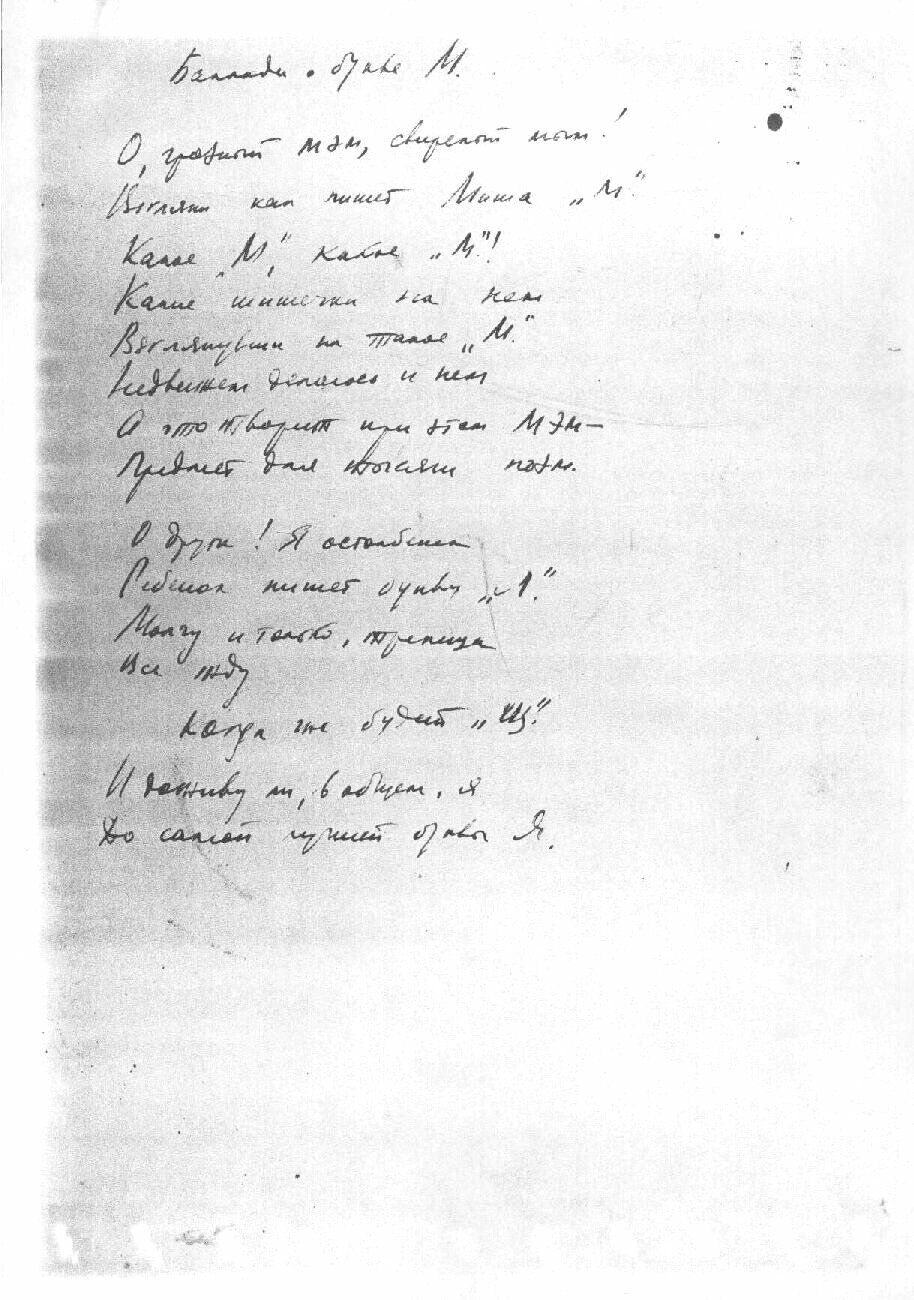 Баллада о букве М.
О, грозный мэм, свирепый мом!
Взгляни как пишет Миша „М“.
Какое „М“, какое „М“!
Какие шишечки на нем
Взглянувши на такое „М“.
Недвижем делаюсь и нем
А что творит при этом Мэм—
Предмет для тысячи поэм.
О други! Я остолбенел
Ребенок пишет букву „Л“.
Молчу и только, трепеща
Все жду
Когда же будет „Щ“.
И доживу ли, в общем, я
До самой лучшей буквы Я.